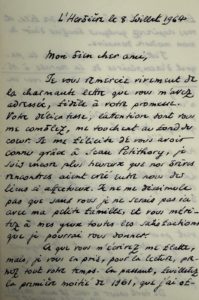 L'Haÿ le 8 Juillet 1964
Mon bien cher ami,
Je vous remercie vivement de
la charmante lettre que vous m'avez
adressée, fidèle à votre promesse.
Votre délicatesse, l'attention dont vous
me comblez, me touchent au fond du
coeur. Je me félicite de vous avoir
connu grâce à Jean Petithory, je
suis encore plus heureux que nos brèves
rencontres aient créé entre nous des
liens si affectueux. Je ne me dissimule
pas que sans vous je ne serais pas ici
avec ma petite famille, et vous méri-
tez à mes yeux toutes les satisfactions
que je pourrai vous donner.
Ce que vous m'écrivez me flatte,
mais, je vous en prie, pour la lecture, pre-
nez tout votre temps. En passant, feuilletez
la première moitié de 1961, que j'ai